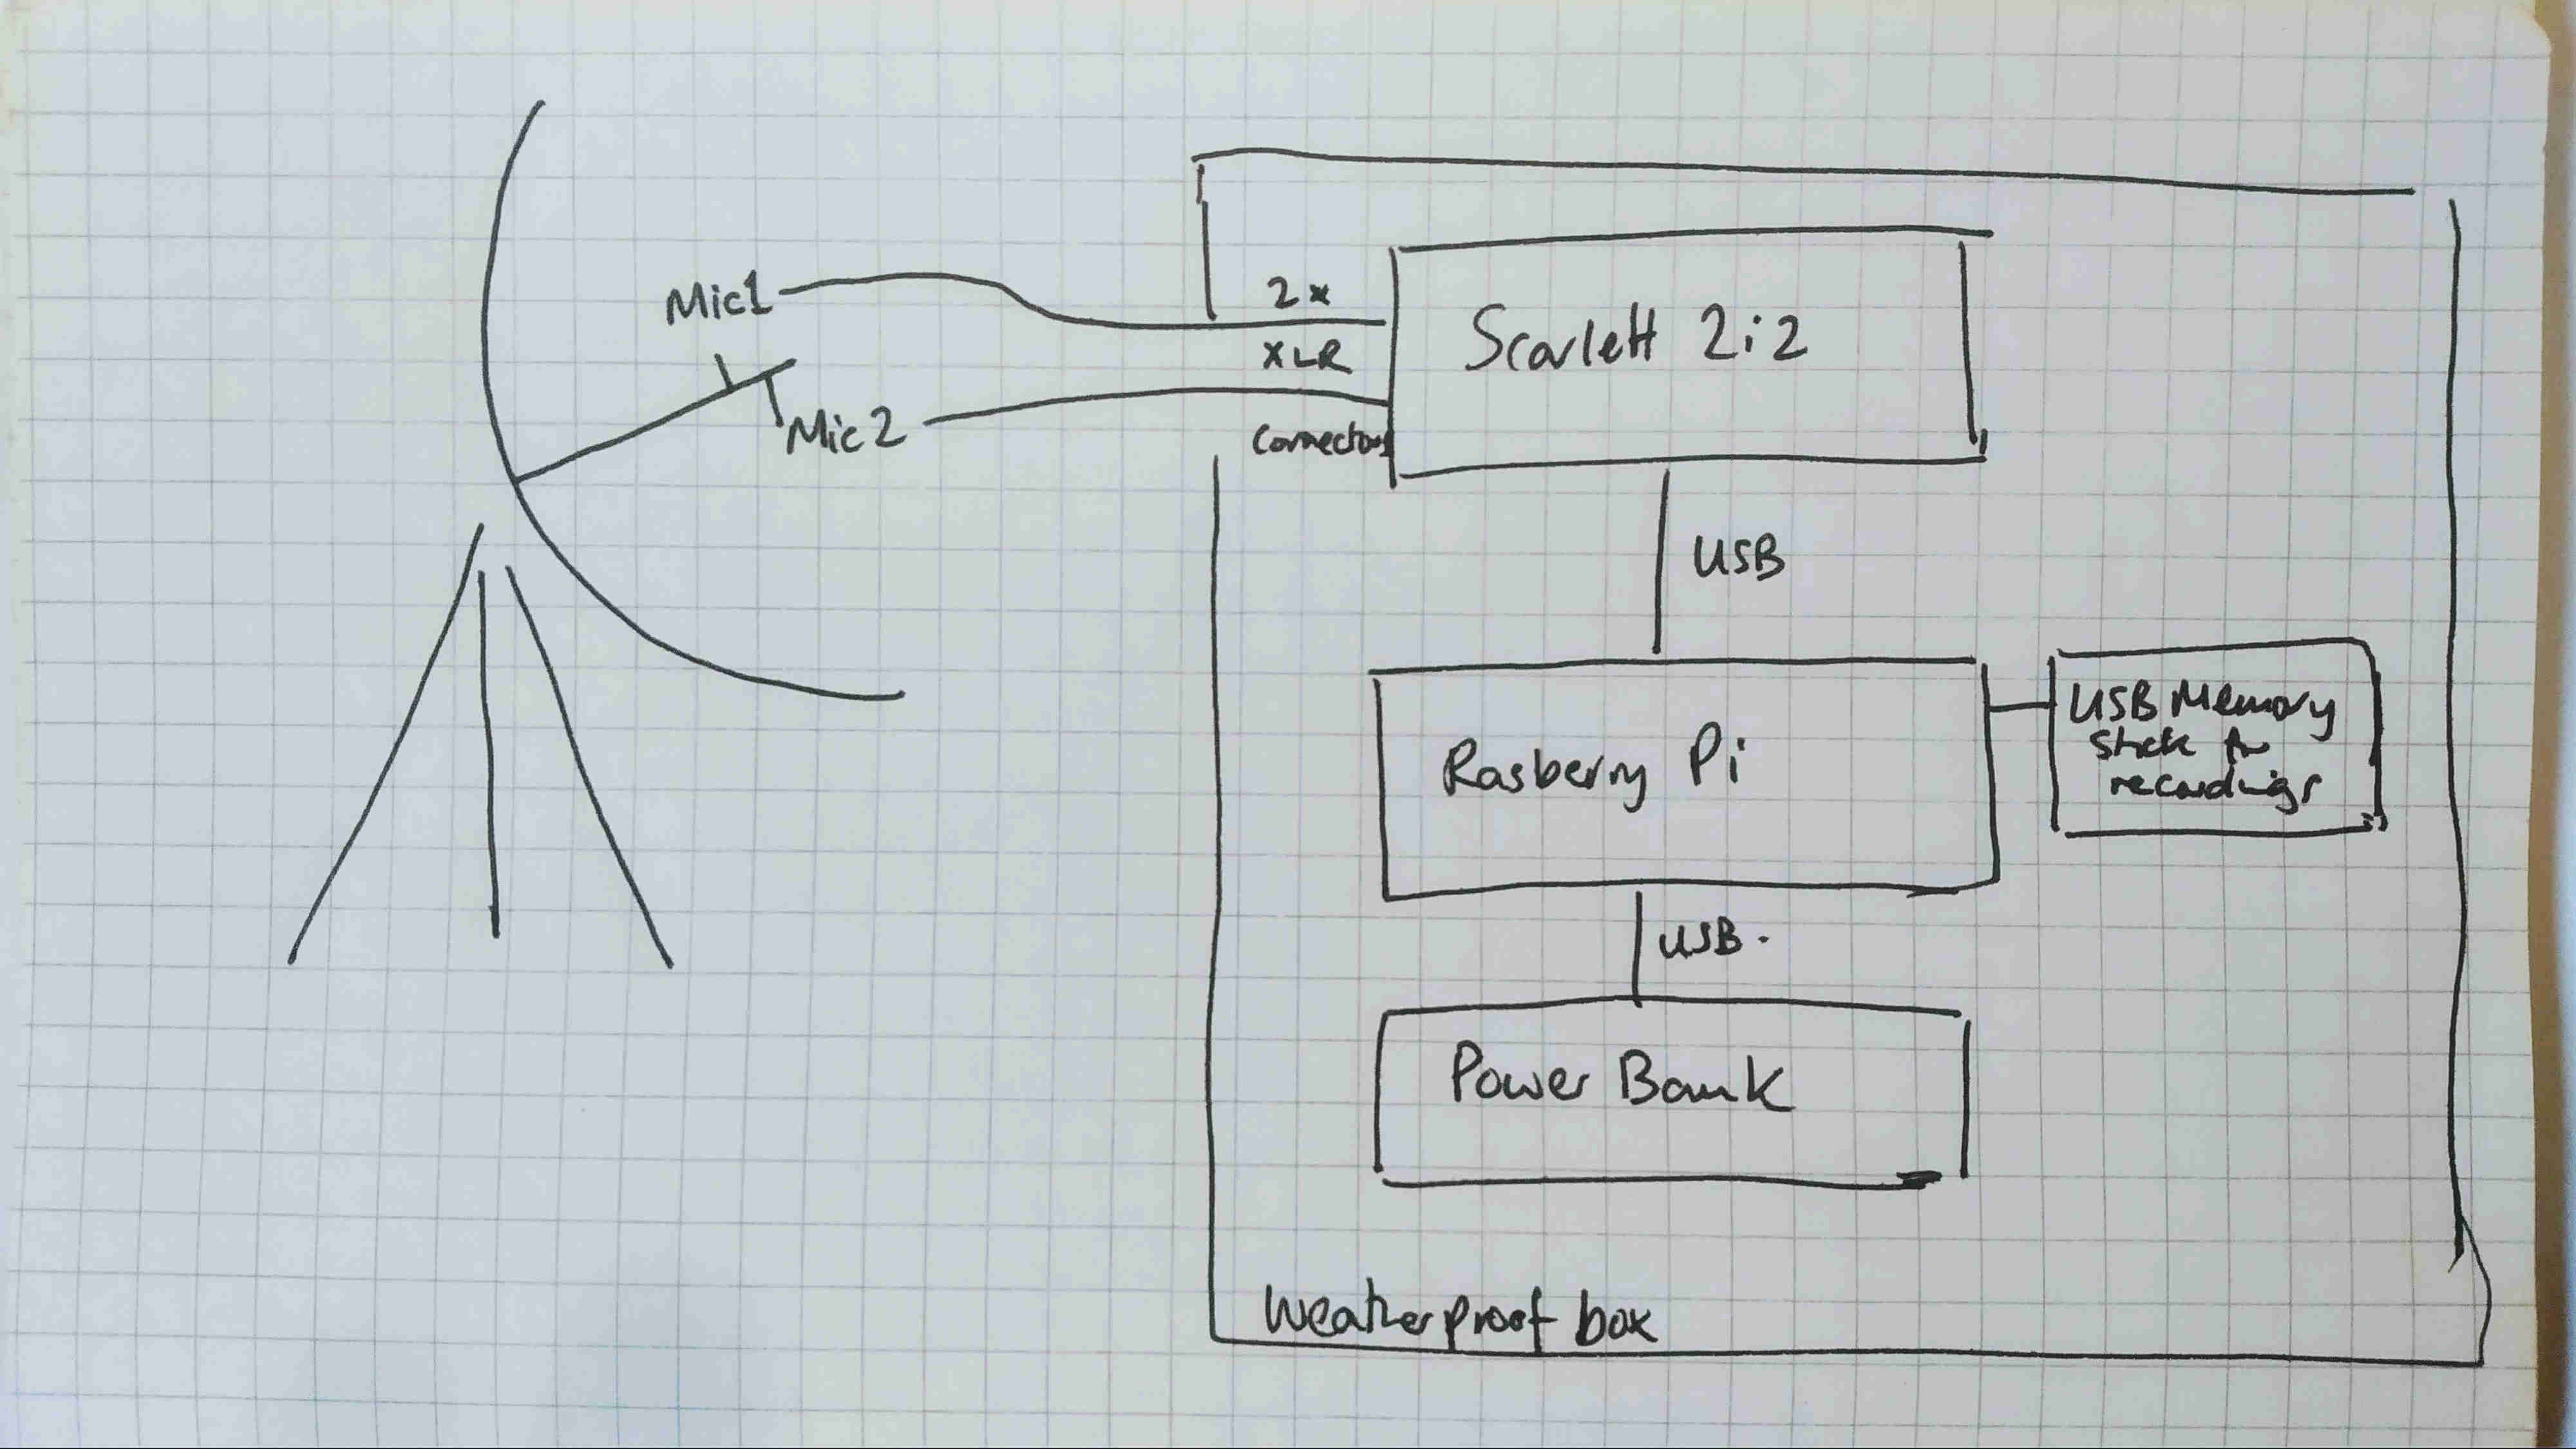 Mic1
Mic2
2x
XLR
Connectors
Scarlett 2i2
USB
Rasberry Pi
USB Memory
stick for
recordings
USB.
Power Bank
Weatherproof box